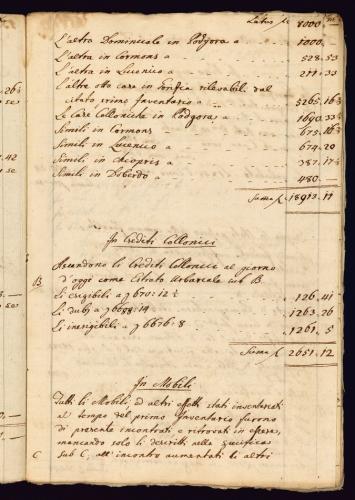 Latus f 8000 —
L'altra Dominicale in Podgora a 1000 —
L'altra in Cormons a 528. 53
L'altra in Lucenico a 277. 33
L'altre otto case in Gorizia rilevabili dal
citato primo Inventario a 5265. 16½
Le Case Colloniche in Podgora a 1690. 33½
Simili in Cormons 675. 16½
Simili in Lucenico a 674. 20
Simili in Chiopris a 387. 17½
Simili in Doberdò a 480 —
Suma f 18973. 11
In Crediti Collonici
Ascendono li Crediti Collonici al giorno
d'oggi come Estratto Urbariale sub B.
B
Li esigibili a f 670: 12½ 126. 41
Li dubj a f 6698: 14 1263. 26
Li inesigibili a f 6676: 8 1261. 5
Suma f 2651. 12
In Mobili
Tutti li Mobili ed altri effetti stati inventariati
al tempo del primo Inventario furono
di presente incontrati e ritrovati in essere,
mancando solo li descritti nella specifica
C sub C, all'incontro aumentati li altri